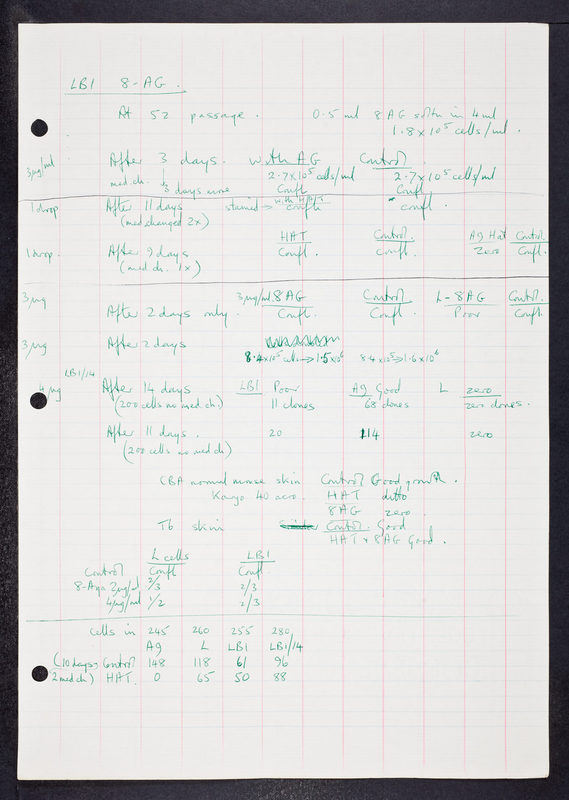 LB1 8-AG.
At 52 passage. 0.5 ml 8AG soltn in 4 ml
1.8 x 10⁵ cells/ml.
3µg/ml After 3 days. with AG Control
med. ch. 2.7 x 10⁵ cells/ml 2.7 x 10⁵ cells/ml
3 days more Confl Confl
1 drop After 11 days stained → confl confl.
(med changed 2x)
HAT Control Ag Hat Control
1 drop. After 9 days Confl. Confl. Zero Confl.
(med ch. 1x)
3µg 3µg/ml 8AG Control L-8AG Control.
After 2 days only. Confl. Confl. Poor Confl.
3µg After 2 days
8.4 x 10⁵ cells → 1.5 x 10⁶ 8.4 x 10⁵ → 1.6 x 10⁶
LB1/14
4µg After 14 days LB1 Poor Ag Good L zero
(200 cells no med ch) 11 clones 68 clones zero clones.
After 11 days. 20 114 zero
(200 cells no med ch)
CBA normal mouse skin Control Good growth.
HAT ditto
8AG zero.
T6 skin Control. Good
HAT x 8AG Good.
L cells LB1
Control Confl Confl.
8-Aga 3µg/ml 2/3 2/3
4µg/ml 1/2 2/3
cells in 245 260 255 280
Ag L LB1 LB1/14
(10 days Control 148 118 61 96
2 med ch) HAT. 0 65 50 88